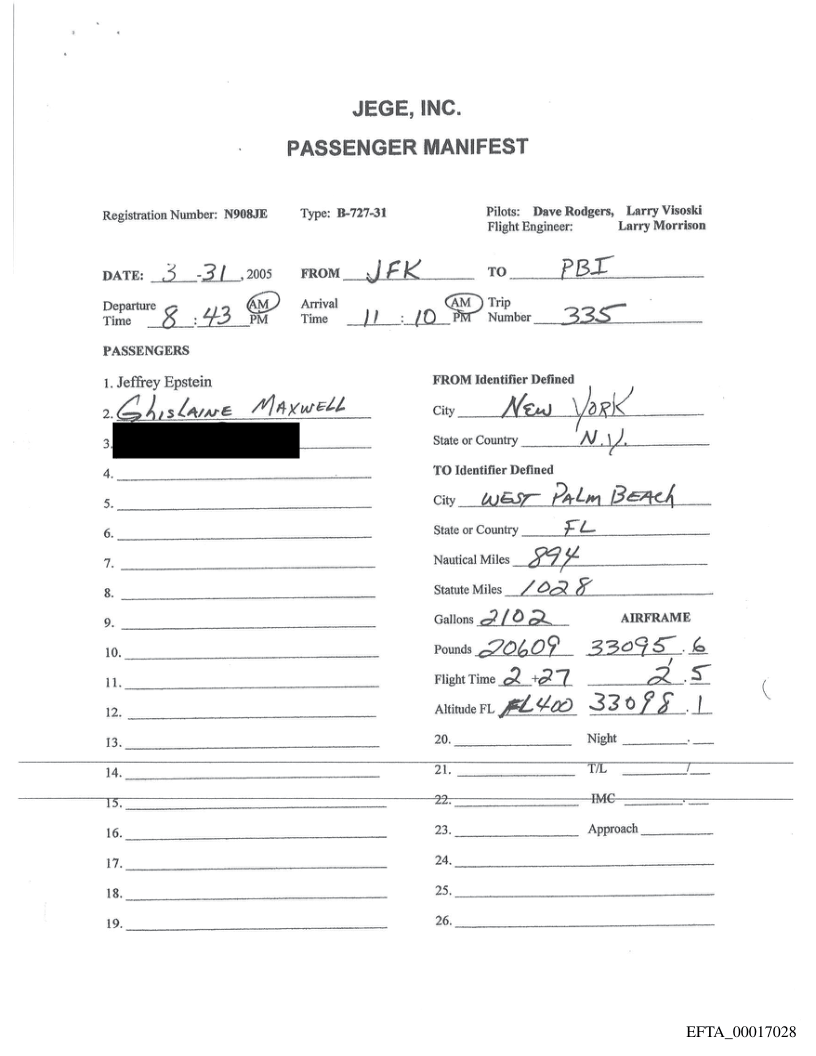 JEGE, INC.
PASSENGER MANIFEST
Registration Number: N908JE Type: B-727-31 Pilots: Dave Rodgers, Larry Visoski
Flight Engineer: Larry Morrison
DATE: 3 -31, 2005 FROM JFK TO PBI
Departure Time 8 : 43 AM PM Arrival Time 11 : 10 AM PM Trip Number 335
PASSENGERS
1. Jeffrey Epstein
2. GhisLAINE MAXWELL
3.
4.
5.
6.
7.
8.
9.
10.
11.
12.
13.
14.
15.
16.
17.
18.
19.
FROM Identifier Defined
City NEW YORK
State or Country N.Y.
TO Identifier Defined
City WEST PALM BEACh
State or Country FL
Nautical Miles 894
Statute Miles 1028
Gallons 2102 AIRFRAME
Pounds 20609 33095.6
Flight Time 2 +27 2.5
Altitude FL FL400 33098.1
20. Night .
21. T/L /
22. IMC .
23. Approach
24.
25.
26.
EFTA_00017028